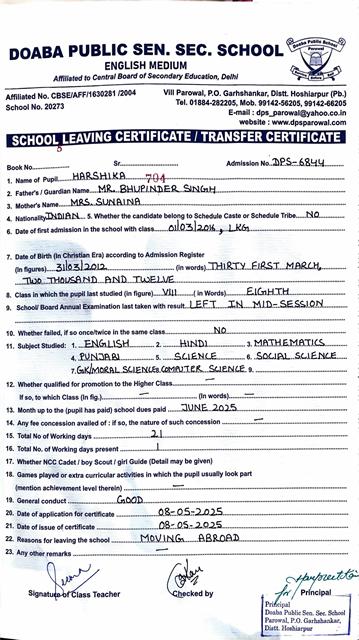 DOABA PUBLIC SEN. SEC. SCHOOL
ENGLISH MEDIUM
Affiliated to Central Board of Secondary Education, Delhi
Affiliated No. CBSE/AFF/1630281 /2004
School No. 20273
Vill Parowal, P.O. Garhshankar, Distt. Hoshiarpur (Pb.)
Tel. 01884-282205, Mob. 99142-56205, 99142-66205
E-mail : dps_parowal@yahoo.co.in
website : www.dpsparowal.com
SCHOOL LEAVING CERTIFICATE / TRANSFER CERTIFICATE
Book No. Sr. Admission No. DPS-6844
1. Name of Pupil HARSHIKA 704
2. Father's / Guardian Name MR. BHUPINDER SINGH
3. Mother's Name MRS. SUNAINA
4. Nationality INDIAN 5. Whether the candidate belong to Schedule Caste or Schedule Tribe NO
6. Date of first admission in the school with class 01/03/2016, LKG
7. Date of Birth (In Christian Era) according to Admission Register
(In figures) 31/03/2012 (in words) THIRTY FIRST MARCH,
TWO THOUSAND AND TWELVE
8. Class in which the pupil last studied (in figure) VIII (In Words) EIGHTH
9. School/ Board Annual Examination last taken with result LEFT IN MID-SESSION
10. Whether failed, if so once/twice in the same class NO
11. Subject Studied : 1. ENGLISH 2. HINDI 3. MATHEMATICS
4. PUNJABI 5. SCIENCE 6. SOCIAL SCIENCE
7. GK/MORAL SCIENCE 8. COMPUTER SCIENCE 9.
12. Whether qualified for promotion to the Higher Class —
If so, to which Class (In fig.) — (In words) —
13. Month up to the (pupil has paid) school dues paid JUNE 2025
14. Any fee concession availed of : if so, the nature of such concession —
15. Total No of Working days 21
16. Total No. of Working days present 1
17. Whether NCC Cadet / boy Scout / girl Guide (Detail may be given)
18. Games played or extra curricular activities in which the pupil usually look part
(mention achievement level therein) —
19. General conduct GOOD
20. Date of application for certificate 08-05-2025
21. Date of issue of certificate 08-05-2025
22. Reasons for leaving the school MOVING ABROAD
23. Any other remarks —
Signature of Class Teacher
Checked by
for Harpreet
Principal
Principal
Doaba Public Sen. Sec. School
Parowal, P.O. Garhshankar,
Distt. Hoshiarpur